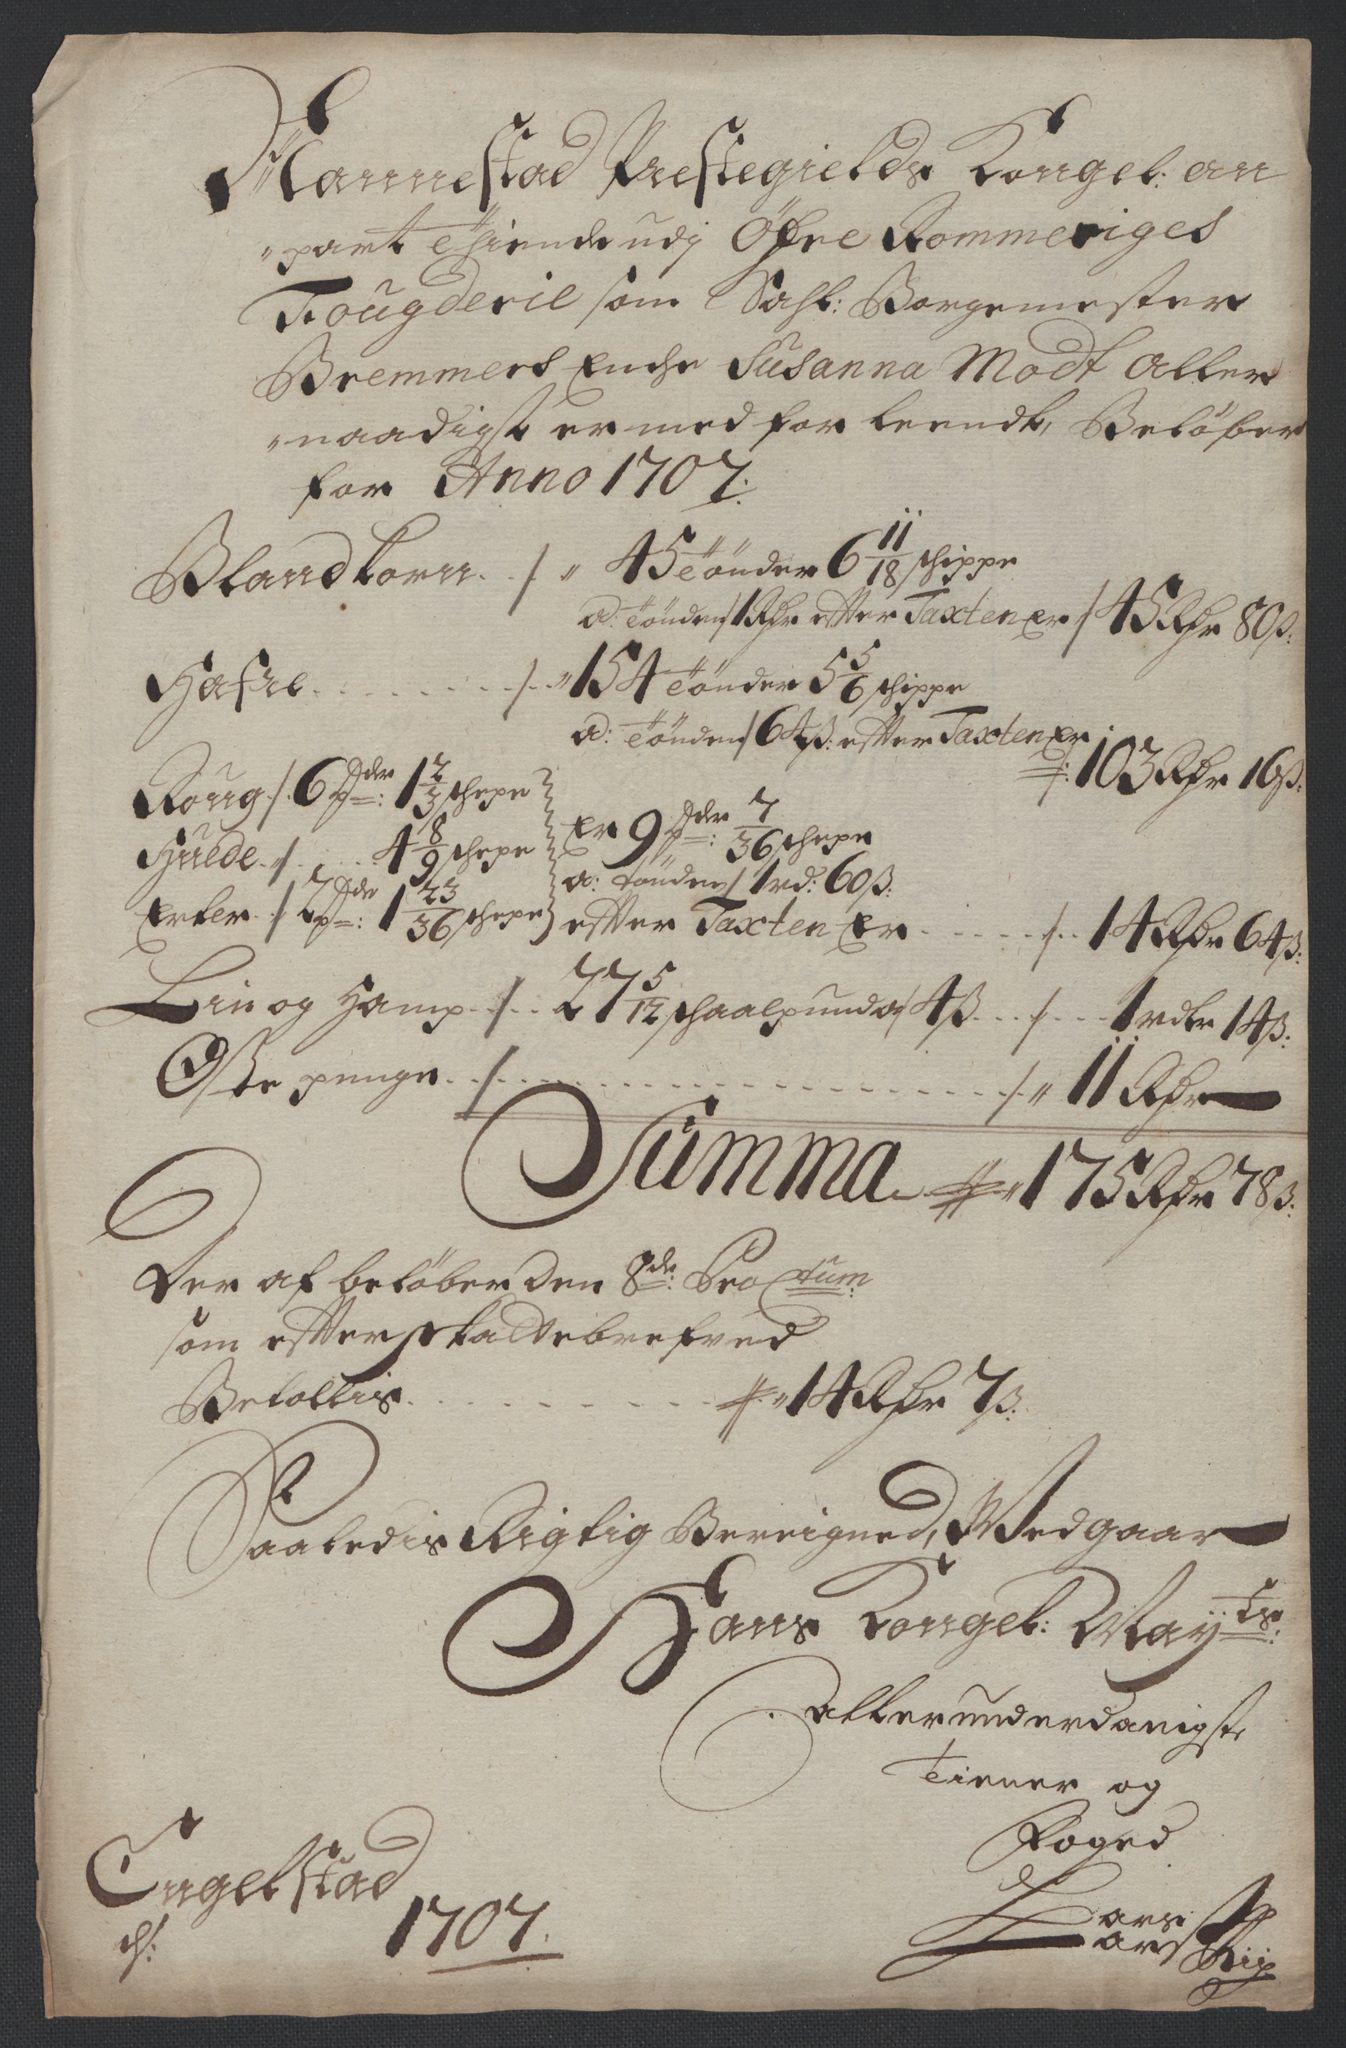 Nannestad Prestegields Kongel: an
"part Thiende udj Öfre Rommeriges
Fougderie som Sahl: Borgemester
Bremmers Enche Susanna Modt Aller
"naadigst er med forleendt, Beløber
for Anno 1707:
Blandkorn . . /. " 45 Tönder 6 11/18 schippe
a: Tönden / 1 Rdr efter Taxten Er / 45 Rdr 80 ß:
Hafre . . . . . . . . /. " 154 Tönder 5 5/6 schippe
a: Tönden / 64 ß: efter Taxten Er /: 103 Rdr 16 ß:
Roug /. 6 Tdr: 1 2/3 schepe
Huede . /. . . . 4 8/9 schepe
Erter . / 2 Tdr: 1 23/36 schepe
Er 9 Tdr: 7/36 schepe
a: tönden / 1 rd: 60 ß:
efter Taxten Er . . . . . . /. . 14 Rdr 64 ß:
Lin og Hamp . /. . . 27 5/12 schaalpund a / 4 ß . . . /. . . . 1 rdlr 14 ß:
Oste penge . . /. . . . . . . . . . . . . . . . . . . /. " 11 Rdr
Summa . " 175 Rdr 78 ß:
Der af beløber den 8de: Pro Centum:
som efter skattebrefved
Bekostis . . . . . . . . . . " 14 Rdr 7 ß:
Saaledis Rigtig Bereigned, Medgaar
Hans Kongel: Mayts:
allerunderdanigste
Tiener og
Foged
Engelstad
d:
1707.
Lars Larss